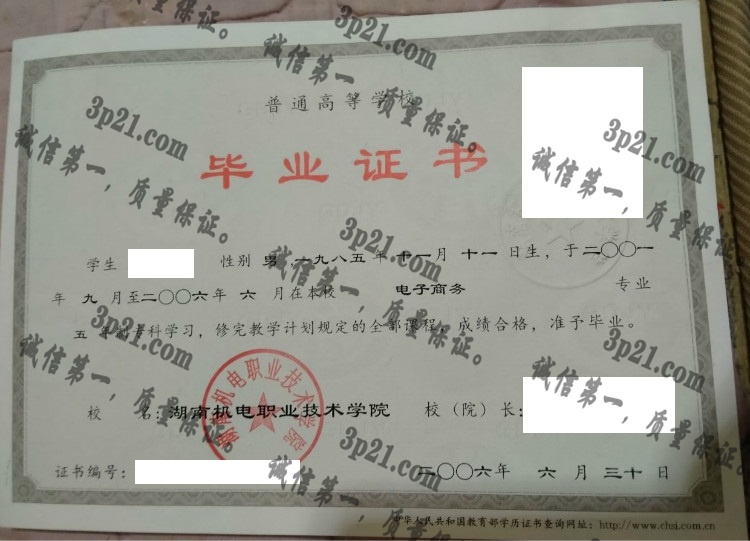 普通高等学校
毕业证书
学生 性别 男,一九八五年十一月十一日生,于二〇〇一
年九月至二〇〇六年六月在本校 电子商务 专业
五年制专科学习,修完教学计划规定的全部课程,成绩合格,准予毕业。
校名:湖南机电职业技术学院 校(院)长:
湖南机电职业技术学院
证书编号: 二〇〇六年六月三十日
中华人民共和国教育部学历证书查询网址:http://www.chsi.com.cn
3p21.com
诚信第一,质量保证。
3p21.com
诚信第一,质量保证。
3p21.com
诚信第一,质量保证。
3p21.com
诚信第一,质量保证。
3p21.com
诚信第一,质量保证。
3p21.com
诚信第一,质量保证。
3p21.com
诚信第一,质量保证。
3p21.com
诚信第一,质量保证。